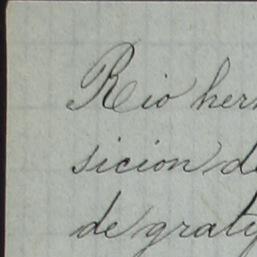 Rio her
sicion de
de graty